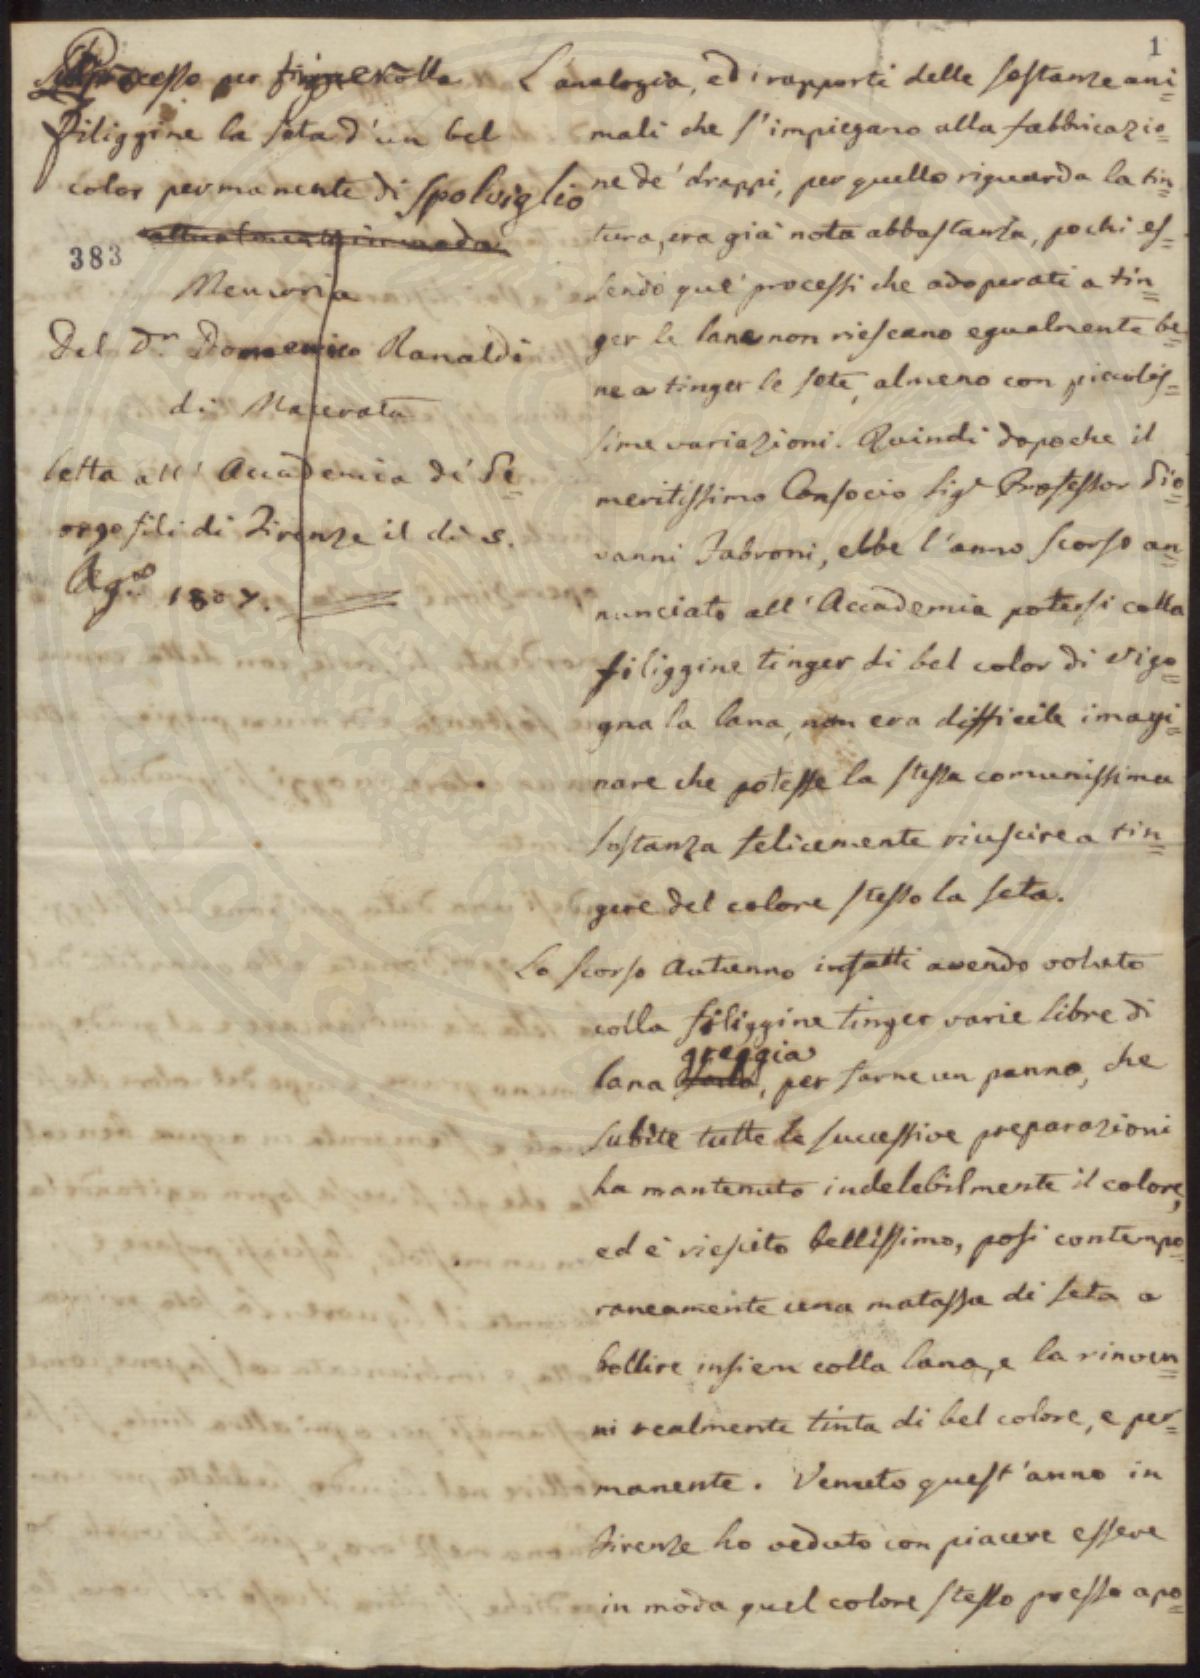 1
Processo per tinger colla
Filiggine la seta d'un bel
color permanente di spolviglio
attualmente in moda
383
Memoria
Del Dr. Domenico Ranaldi
di Macerata
letta all' Accademia de' Ge=
orgofili di Firenze il dì 5.
Ag.to 1807.
L'analogia, ed i rapporti delle sostanze ani=
mali che s'impiegano alla fabbricazio=
ne de' drappi, per quello riguarda la tin=
tura, era già nota abbastanza, pochi es=
sendo que' processi che adoperati a tin=
ger le lane non riescano egualmente be=
ne a tinger le sete, almeno con piccolis=
sime variazioni. Quindi dopo che il
meritissimo Consocio Sigr Professor Gio=
vanni Fabroni, ebbe l'anno scorso an=
nunciato all' Accademia potersi colla
filiggine tinger di bel color di vigo=
gna la lana, non era difficile imagi=
nare che potesse la stessa comunissima
sostanza felicemente riuscire a tin=
gere del colore stesso la seta.
Lo scorso Autunno infatti avendo voluto
colla filiggine tinger varie libre di
greggia
lana, per farne un panno, che
subite tutte le successive preparazioni
ha mantenuto indelebilmente il colore,
ed è riescito bellissimo, posi contempo=
raneamente una matassa di seta a
bollire insiem colla lana, e la rinven=
ni realmente tinta di bel colore, e per=
manente. Venuto quest'anno in
Firenze ho veduto con piacere essere
in moda quel colore stesso presso a po=